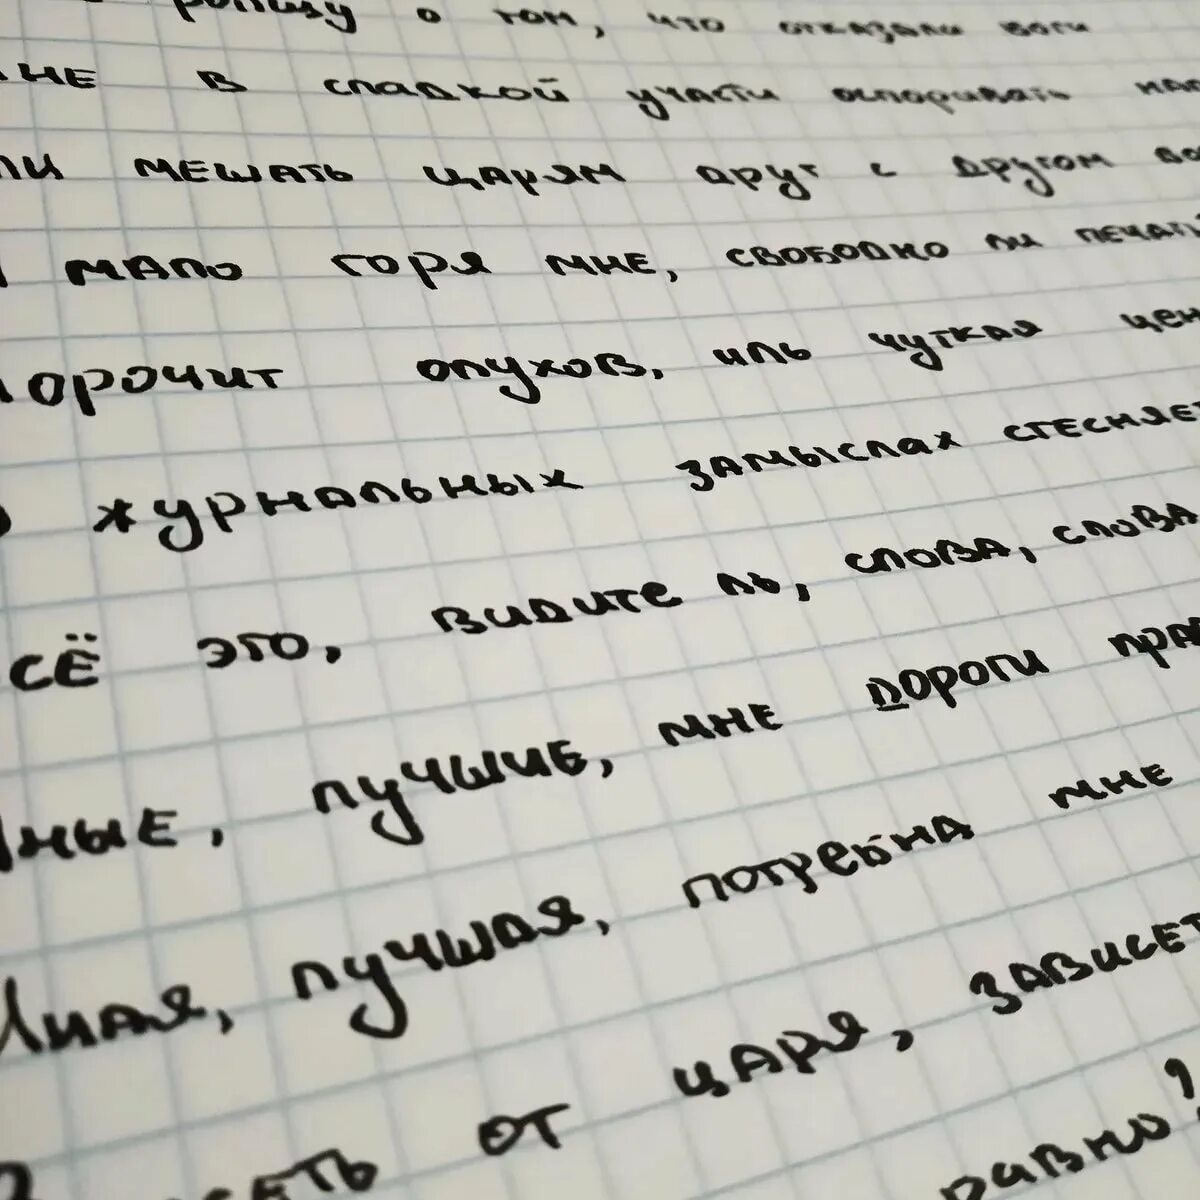 ропщу о том, что отказали боги
мне в сладкой участи оспоривать
мешать царям друг с другом
мало горя мне, свободно ли печать
морочит олухов, иль чуткая
журнальных замыслах стесняет
сё это, видите ль, слова, слова
Иные, лучшие, мне дороги
Иная, лучшая, потребна мне
от царя, зависеть
равно?